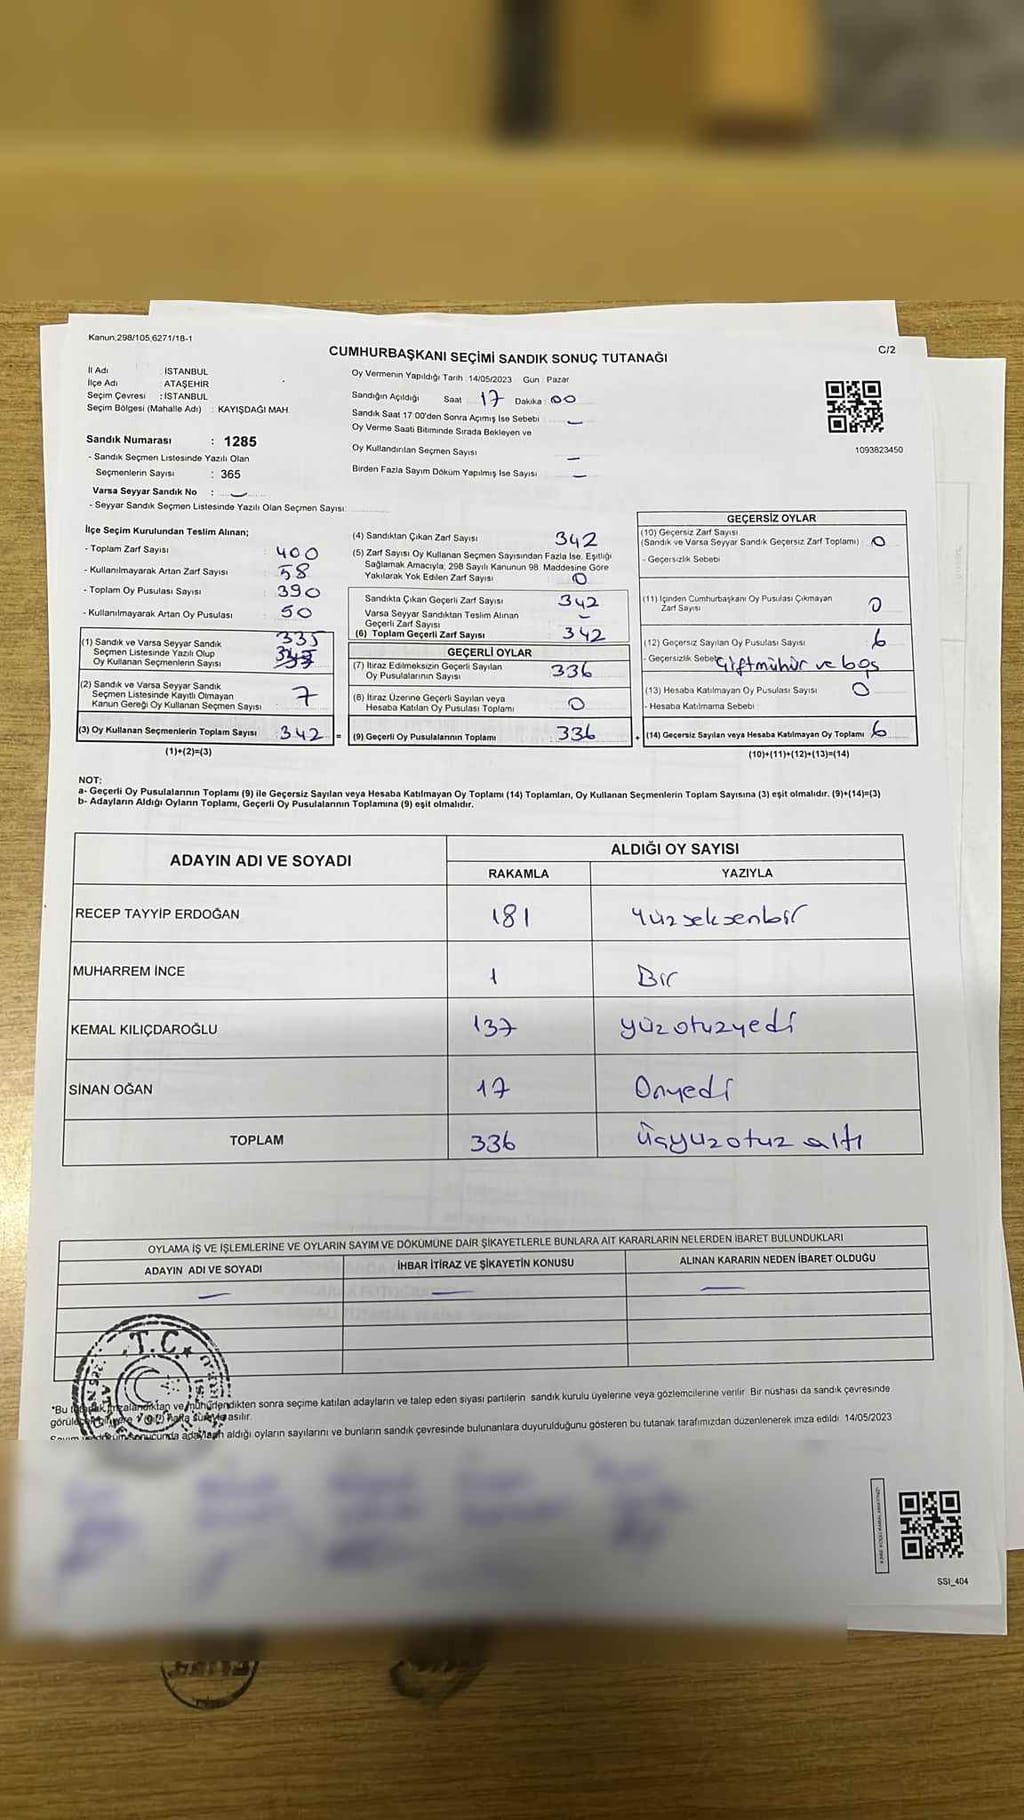 Kanun,298/105,6271/18-1
C/2
CUMHURBAŞKANI SEÇİMİ SANDIK SONUÇ TUTANAĞI
İl Adı : İSTANBUL
İlçe Adı : ATAŞEHİR
Seçim Çevresi : İSTANBUL
Seçim Bölgesi (Mahalle Adı) : KAYIŞDAĞI MAH.
Sandık Numarası : 1285
- Sandık Seçmen Listesinde Yazılı Olan
Seçmenlerin Sayısı : 365
Varsa Seyyar Sandık No : -
- Seyyar Sandık Seçmen Listesinde Yazılı Olan Seçmen Sayısı:
Oy Vermenin Yapıldığı Tarih : 14/05/2023 Gün : Pazar
Sandığın Açıldığı Saat 17 Dakika : 00
Sandık Saat 17 00'den Sonra Açımış İse Sebebi -
Oy Verme Saati Bitiminde Sırada Bekleyen ve
Oy Kullandırılan Seçmen Sayısı -
Birden Fazla Sayım Döküm Yapılmış İse Sayısı -
1093823450
İlçe Seçim Kurulundan Teslim Alınan;
- Toplam Zarf Sayısı : 400
- Kullanılmayarak Artan Zarf Sayısı : 58
- Toplam Oy Pusulası Sayısı : 390
- Kullanılmayarak Artan Oy Pusulası : 50
(1) Sandık ve Varsa Seyyar Sandık
Seçmen Listesinde Yazılı Olup
Oy Kullanan Seçmenlerin Sayısı 335
(2) Sandık ve Varsa Seyyar Sandık
Seçmen Listesinde Kayıtlı Olmayan
Kanun Gereği Oy Kullanan Seçmen Sayısı 7
(3) Oy Kullanan Seçmenlerin Toplam Sayısı 342 =
(1)+(2)=(3)
(4) Sandıktan Çıkan Zarf Sayısı 342
(5) Zarf Sayısı Oy Kullanan Seçmen Sayısından Fazla İse, Eşitliği
Sağlamak Amacıyla; 298 Sayılı Kanunun 98. Maddesine Göre
Yakılarak Yok Edilen Zarf Sayısı 0
Sandıkta Çıkan Geçerli Zarf Sayısı 342
Varsa Seyyar Sandıktan Teslim Alınan
Geçerli Zarf Sayısı -
(6) Toplam Geçerli Zarf Sayısı 342
GEÇERLİ OYLAR
(7) İtiraz Edilmeksizin Geçerli Sayılan
Oy Pusulalarının Sayısı 336
(8) İtiraz Üzerine Geçerli Sayılan veya
Hesaba Katılan Oy Pusulası Toplamı 0
(9) Geçerli Oy Pusulalarının Toplamı 336 +
GEÇERSİZ OYLAR
(10) Geçersiz Zarf Sayısı
(Sandık ve Varsa Seyyar Sandık Geçersiz Zarf Toplamı) : 0
- Geçersizlik Sebebi
(11) İçinden Cumhurbaşkanı Oy Pusulası Çıkmayan
Zarf Sayısı 0
(12) Geçersiz Sayılan Oy Pusulası Sayısı 6
- Geçersizlik Sebebi Çiftmühür ve boş
(13) Hesaba Katılmayan Oy Pusulası Sayısı 0
- Hesaba Katılmama Sebebi
(14) Geçersiz Sayılan veya Hesaba Katılmayan Oy Toplamı 6
(10)+(11)+(12)+(13)=(14)
NOT:
a- Geçerli Oy Pusulalarının Toplamı (9) ile Geçersiz Sayılan veya Hesaba Katılmayan Oy Toplamı (14) Toplamları, Oy Kullanan Seçmenlerin Toplam Sayısına (3) eşit olmalıdır. (9)+(14)=(3)
b- Adayların Aldığı Oyların Toplamı, Geçerli Oy Pusulalarının Toplamına (9) eşit olmalıdır.
ADAYIN ADI VE SOYADI
ALDIĞI OY SAYISI
RAKAMLA YAZIYLA
RECEP TAYYİP ERDOĞAN 181 Yüzseksenbir
MUHARREM İNCE 1 Bir
KEMAL KILIÇDAROĞLU 137 yüzotuzyedi
SİNAN OĞAN 17 Onyedi
TOPLAM 336 Üçyüzotuz altı
OYLAMA İŞ VE İŞLEMLERİNE VE OYLARIN SAYIM VE DÖKÜMÜNE DAİR ŞİKAYETLERLE BUNLARA AİT KARARLARIN NELERDEN İBARET BULUNDUKLARI
ADAYIN ADI VE SOYADI İHBAR İTİRAZ VE ŞİKAYETİN KONUSU ALINAN KARARIN NEDEN İBARET OLDUĞU
- - -
T.C.
*Bu imzalandıktan ve mühürlendikten sonra seçime katılan adayların ve talep eden siyasi partilerin sandık kurulu üyelerine veya gözlemcilerine verilir. Bir nüshası da sandık çevresinde
hafta süreyle asılır.
aldığı oyların sayılarını ve bunların sandık çevresinde bulunanlara duyurulduğunu gösteren bu tutanak tarafımızdan düzenlenerek imza edildi. 14/05/2023
SSI_404